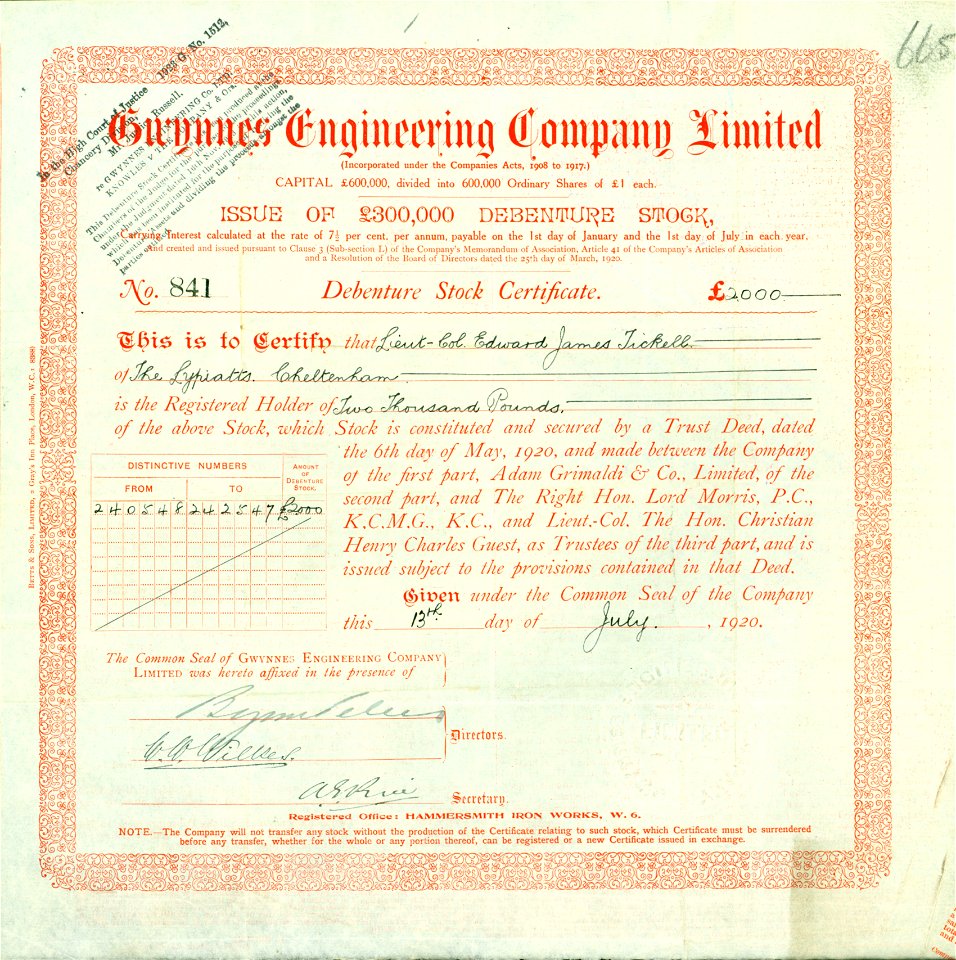 665
In the High Court of Justice 1923 G. No. 1512,
Chancery Division,
Mr. Justice Russell.
re GWYNNES ENGINEERING Co. LTD.
KNOWLES v. COMPANY & Ors.
This Debenture Stock Certificate produced at the
Chambers of the Judge for the
under the Judgment dated 16th Nov. proceedings
which has been instituted for the purpose of this action,
Debenture Assets and dividing the proceeds amongst the
parties entitled
Gwynnes Engineering Company Limited
(Incorporated under the Companies Acts, 1908 to 1917.)
CAPITAL £600,000, divided into 600,000 Ordinary Shares of £1 each.
ISSUE OF £300,000 DEBENTURE STOCK,
Carrying Interest calculated at the rate of 7½ per cent. per annum, payable on the 1st day of January and the 1st day of July in each year.
and created and issued pursuant to Clause 3 (Sub-section L) of the Company's Memorandum of Association, Article 41 of the Company's Articles of Association
and a Resolution of the Board of Directors dated the 25th day of March, 1920.
No. 841 Debenture Stock Certificate. £2000
This is to Certify that Lieut-Col. Edward James Tickell
of The Lypiatts. Cheltenham
is the Registered Holder of Two Thousand Pounds.
of the above Stock, which Stock is constituted and secured by a Trust Deed, dated
the 6th day of May, 1920, and made between the Company
of the first part, Adam Grimaldi & Co., Limited, of the
second part, and The Right Hon. Lord Morris, P.C.,
K.C.M.G., K.C., and Lieut.-Col. The Hon. Christian
Henry Charles Guest, as Trustees of the third part, and is
issued subject to the provisions contained in that Deed.
DISTINCTIVE NUMBERS AMOUNT OF DEBENTURE STOCK.
FROM TO
240548 242547 £2000
Given under the Common Seal of the Company
this 13th day of July. , 1920.
The Common Seal of GWYNNES ENGINEERING COMPANY
LIMITED was hereto affixed in the presence of
W. W. Wilkes.
Directors.
A E Rice
Secretary.
Registered Office: HAMMERSMITH IRON WORKS, W. 6.
NOTE.—The Company will not transfer any stock without the production of the Certificate relating to such stock, which Certificate must be surrendered
before any transfer, whether for the whole or any portion thereof, can be registered or a new Certificate issued in exchange.
BETTS & SONS, LIMITED, 2 GRAY'S INN PLACE, LONDON, W.C.1